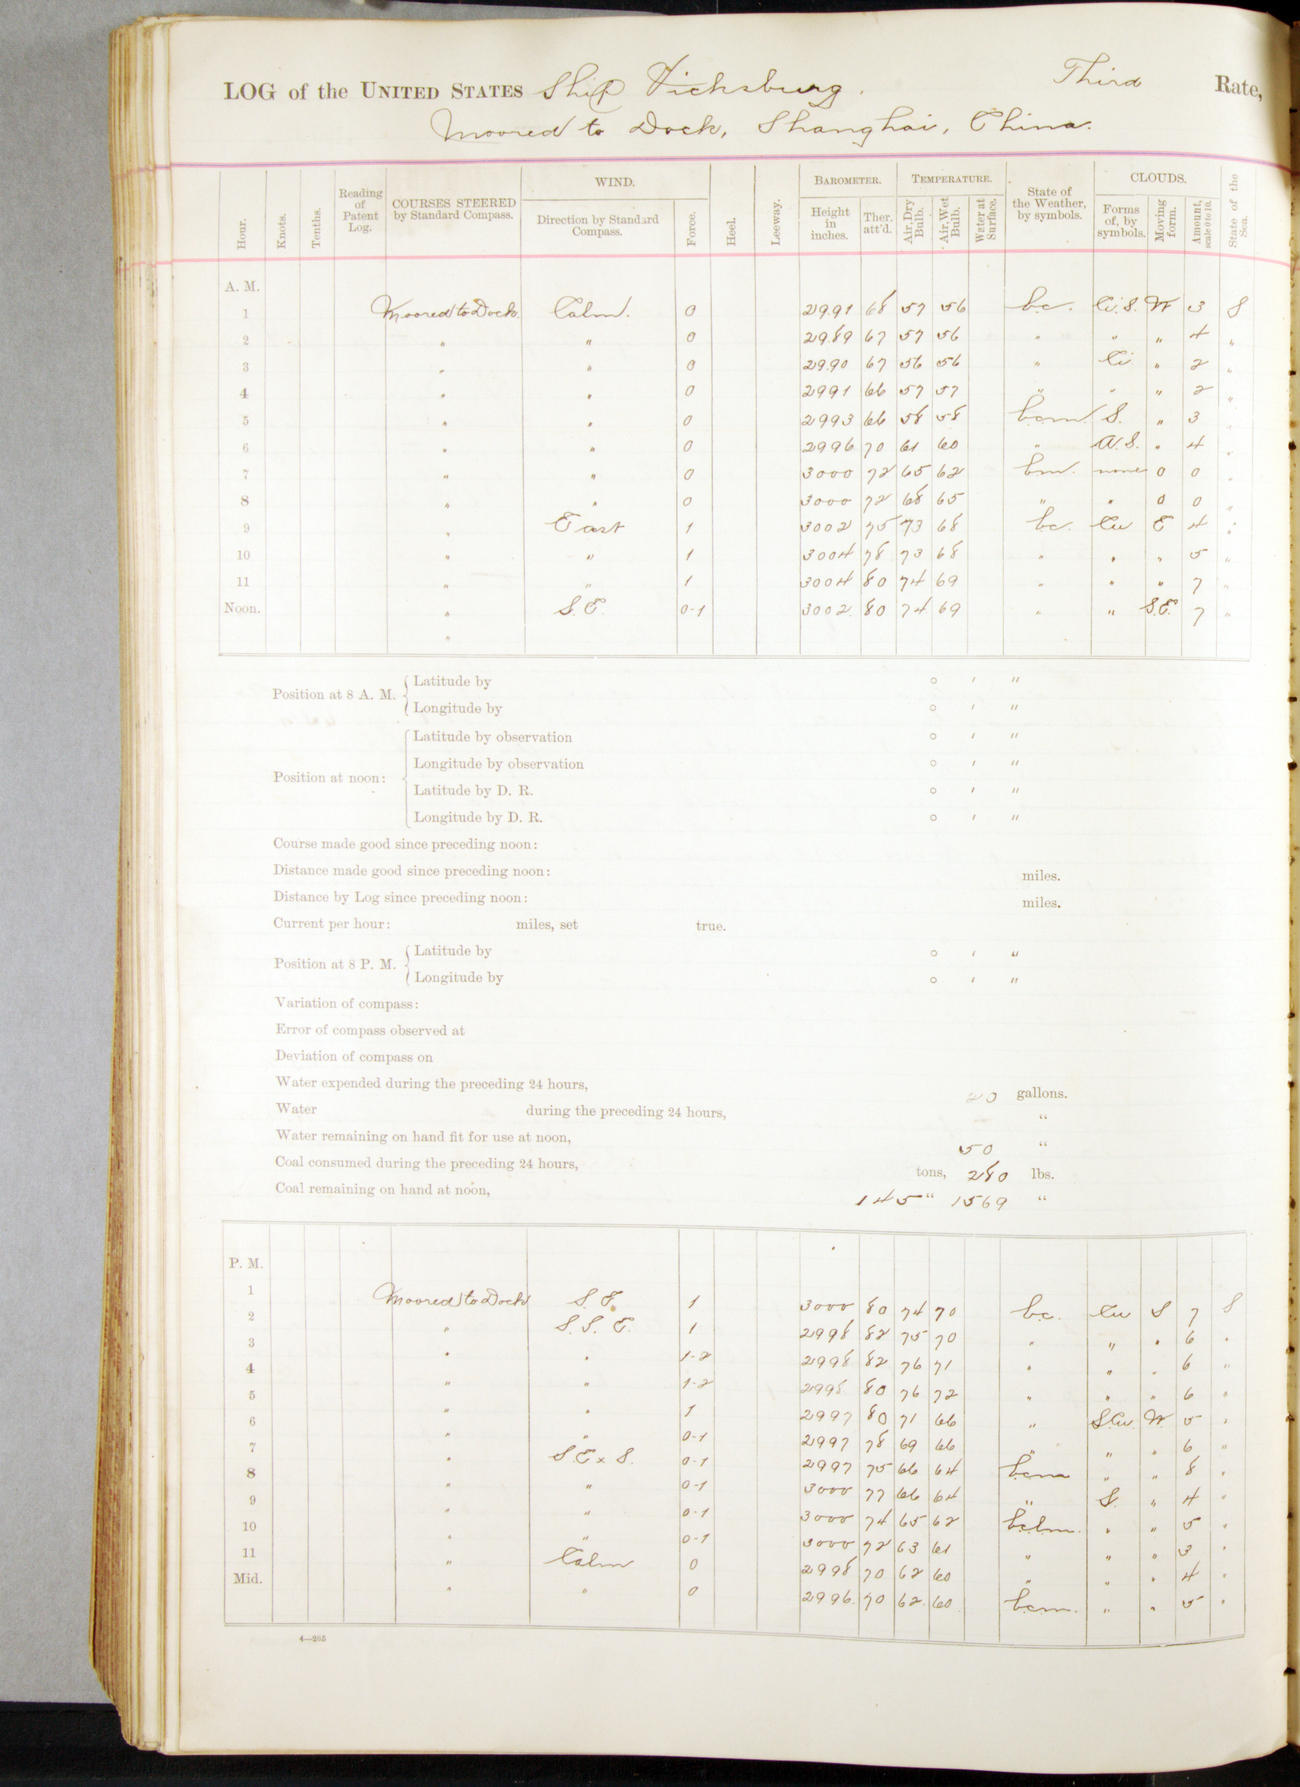 LOG of the UNITED STATES Ship Vicksburg. Third Rate,
Moored to Dock, Shanghai, China.
Hour. Knots. Tenths. Reading of Patent Log. COURSES STEERED by Standard Compass. WIND. Direction by Standard Compass. Force. Heel. Leeway. BAROMETER. Height in inches. Ther. att'd. TEMPERATURE. Air, Dry Bulb. Air, Wet Bulb. Water at Surface. State of the Weather, by symbols. CLOUDS. Forms of, by symbols. Moving form. Amount, scale 0 to 10. State of the Sea.
A. M.
1 Moored to Dock. Calm. 0 29.91 68 57 56 bc. Ci.S. W 3 S
2 " " 0 29.89 67 57 56 " " " 4 "
3 " " 0 29.90 67 56 56 " Ci " 2 "
4 " " 0 2991 66 57 57 " " " 2 "
5 " " 0 2993 66 58 58 bcm S. " 3 "
6 " " 0 2996 70 61 60 " A.S. " 4 "
7 " " 0 3000 72 65 62 bm. none 0 0 "
8 " " 0 3000 72 68 65 " " 0 0 "
9 " East 1 3002 75 73 68 bc. Cu E 4 "
10 " " 1 3004 78 73 68 " " " 5 "
11 " " 1 3004 80 74 69 " " " 7 "
Noon. " S.E. 0-1 3002. 80 74 69 " " S.E. 7 "
"
Position at 8 A. M. Latitude by ° ′ ″
Longitude by ° ′ ″
Position at noon: Latitude by observation ° ′ ″
Longitude by observation ° ′ ″
Latitude by D. R. ° ′ ″
Longitude by D. R. ° ′ ″
Course made good since preceding noon:
Distance made good since preceding noon: miles.
Distance by Log since preceding noon: miles.
Current per hour: miles, set true.
Position at 8 P. M. Latitude by ° ′ ″
Longitude by ° ′ ″
Variation of compass:
Error of compass observed at
Deviation of compass on
Water expended during the preceding 24 hours, 20 gallons.
Water during the preceding 24 hours, "
Water remaining on hand fit for use at noon, 50 "
Coal consumed during the preceding 24 hours, tons, 280 lbs.
Coal remaining on hand at noon, 145 " 1569 "
P. M.
1 Moored to Dock S.E. 1 3000 80 74 70 bc. Cu S 7 S
2 " S.S.E. 1 2998 82 75 70 " " " 6 "
3 " " 1-2 2998 82 76 71 " " " 6 "
4 " " 1-2 2998 80 76 72 " " " 6 "
5 " " 1 2997 80 71 66 " S.Cu. W 5 "
6 " " 0-1 2997 78 69 66 " " " 6 "
7 " S.E x S. 0-1 2997 75 66 64 bcm " " 8 "
8 " " 0-1 3000 77 66 64 " S. " 4 "
9 " " 0-1 3000 74 65 62 bclm. " " 5 "
10 " " 0-1 3000 72 63 61 " " " 3 "
11 " Calm 0 2998 70 62 60 " " " 4 "
Mid. " " 0 2996. 70 62. 60 bcm. " " 5 "
4—205